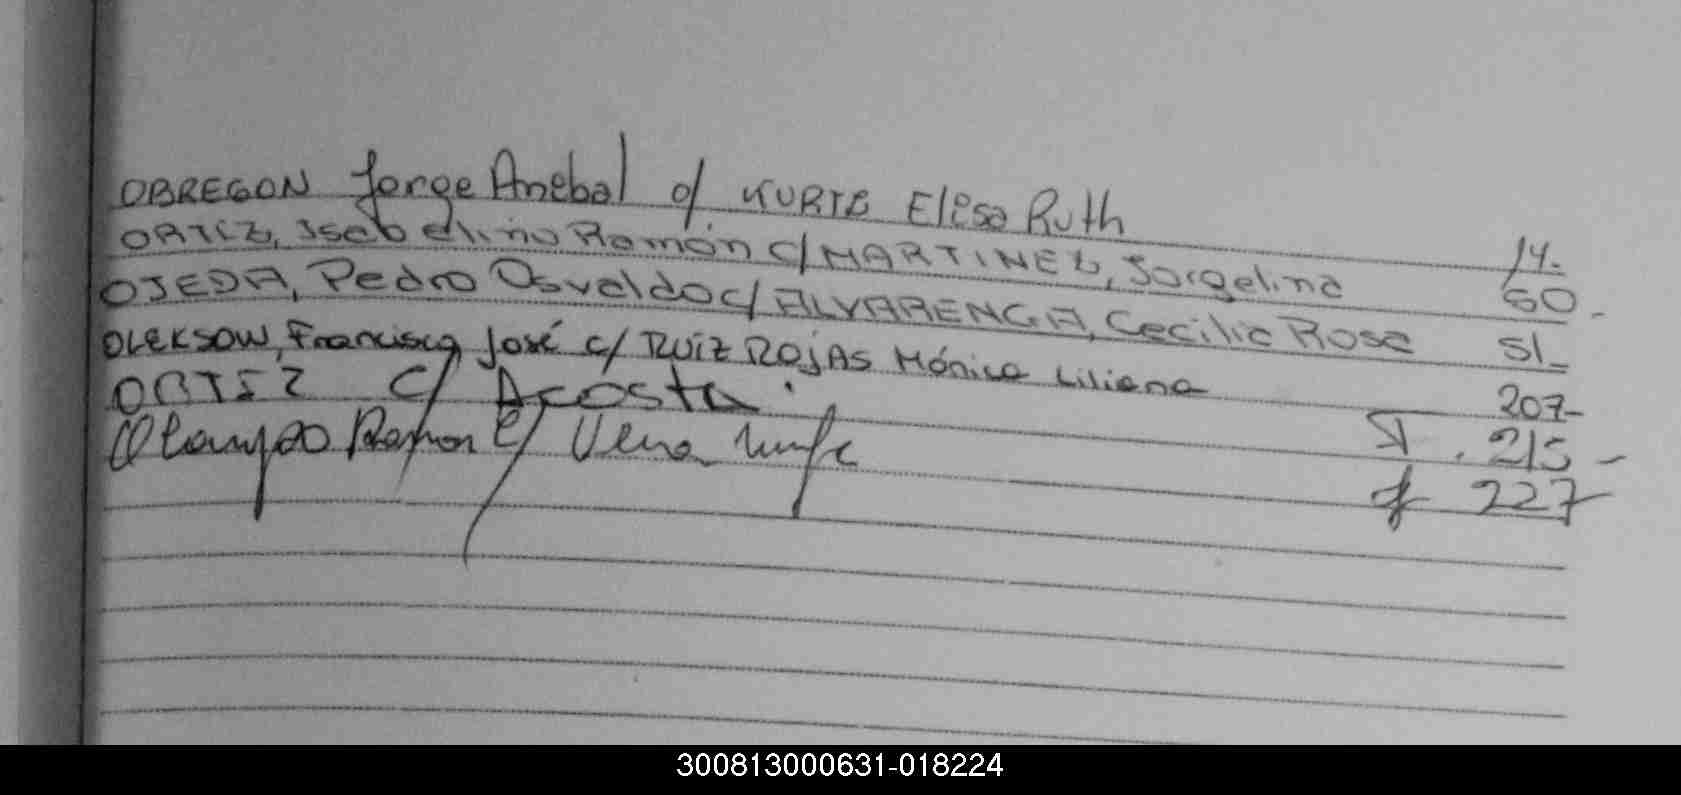 OBREGON Jorge Anebal c/ KURTB Elesa Ruth 14.
ORTIZ, Isabelino Ramón c/ MARTINEZ, Jorgelina 60-
OJEDA, Pedro Osvaldo c/ ALVARENGA, Cecilia Rosa 51-
OLEKSOW, Francisco José c/ RUIZ ROJAS Mónica Liliana 207-
ORTIZ c/ Acosta. 215-
Ocampo Ramon c/ Vera 227
300813000631-018224